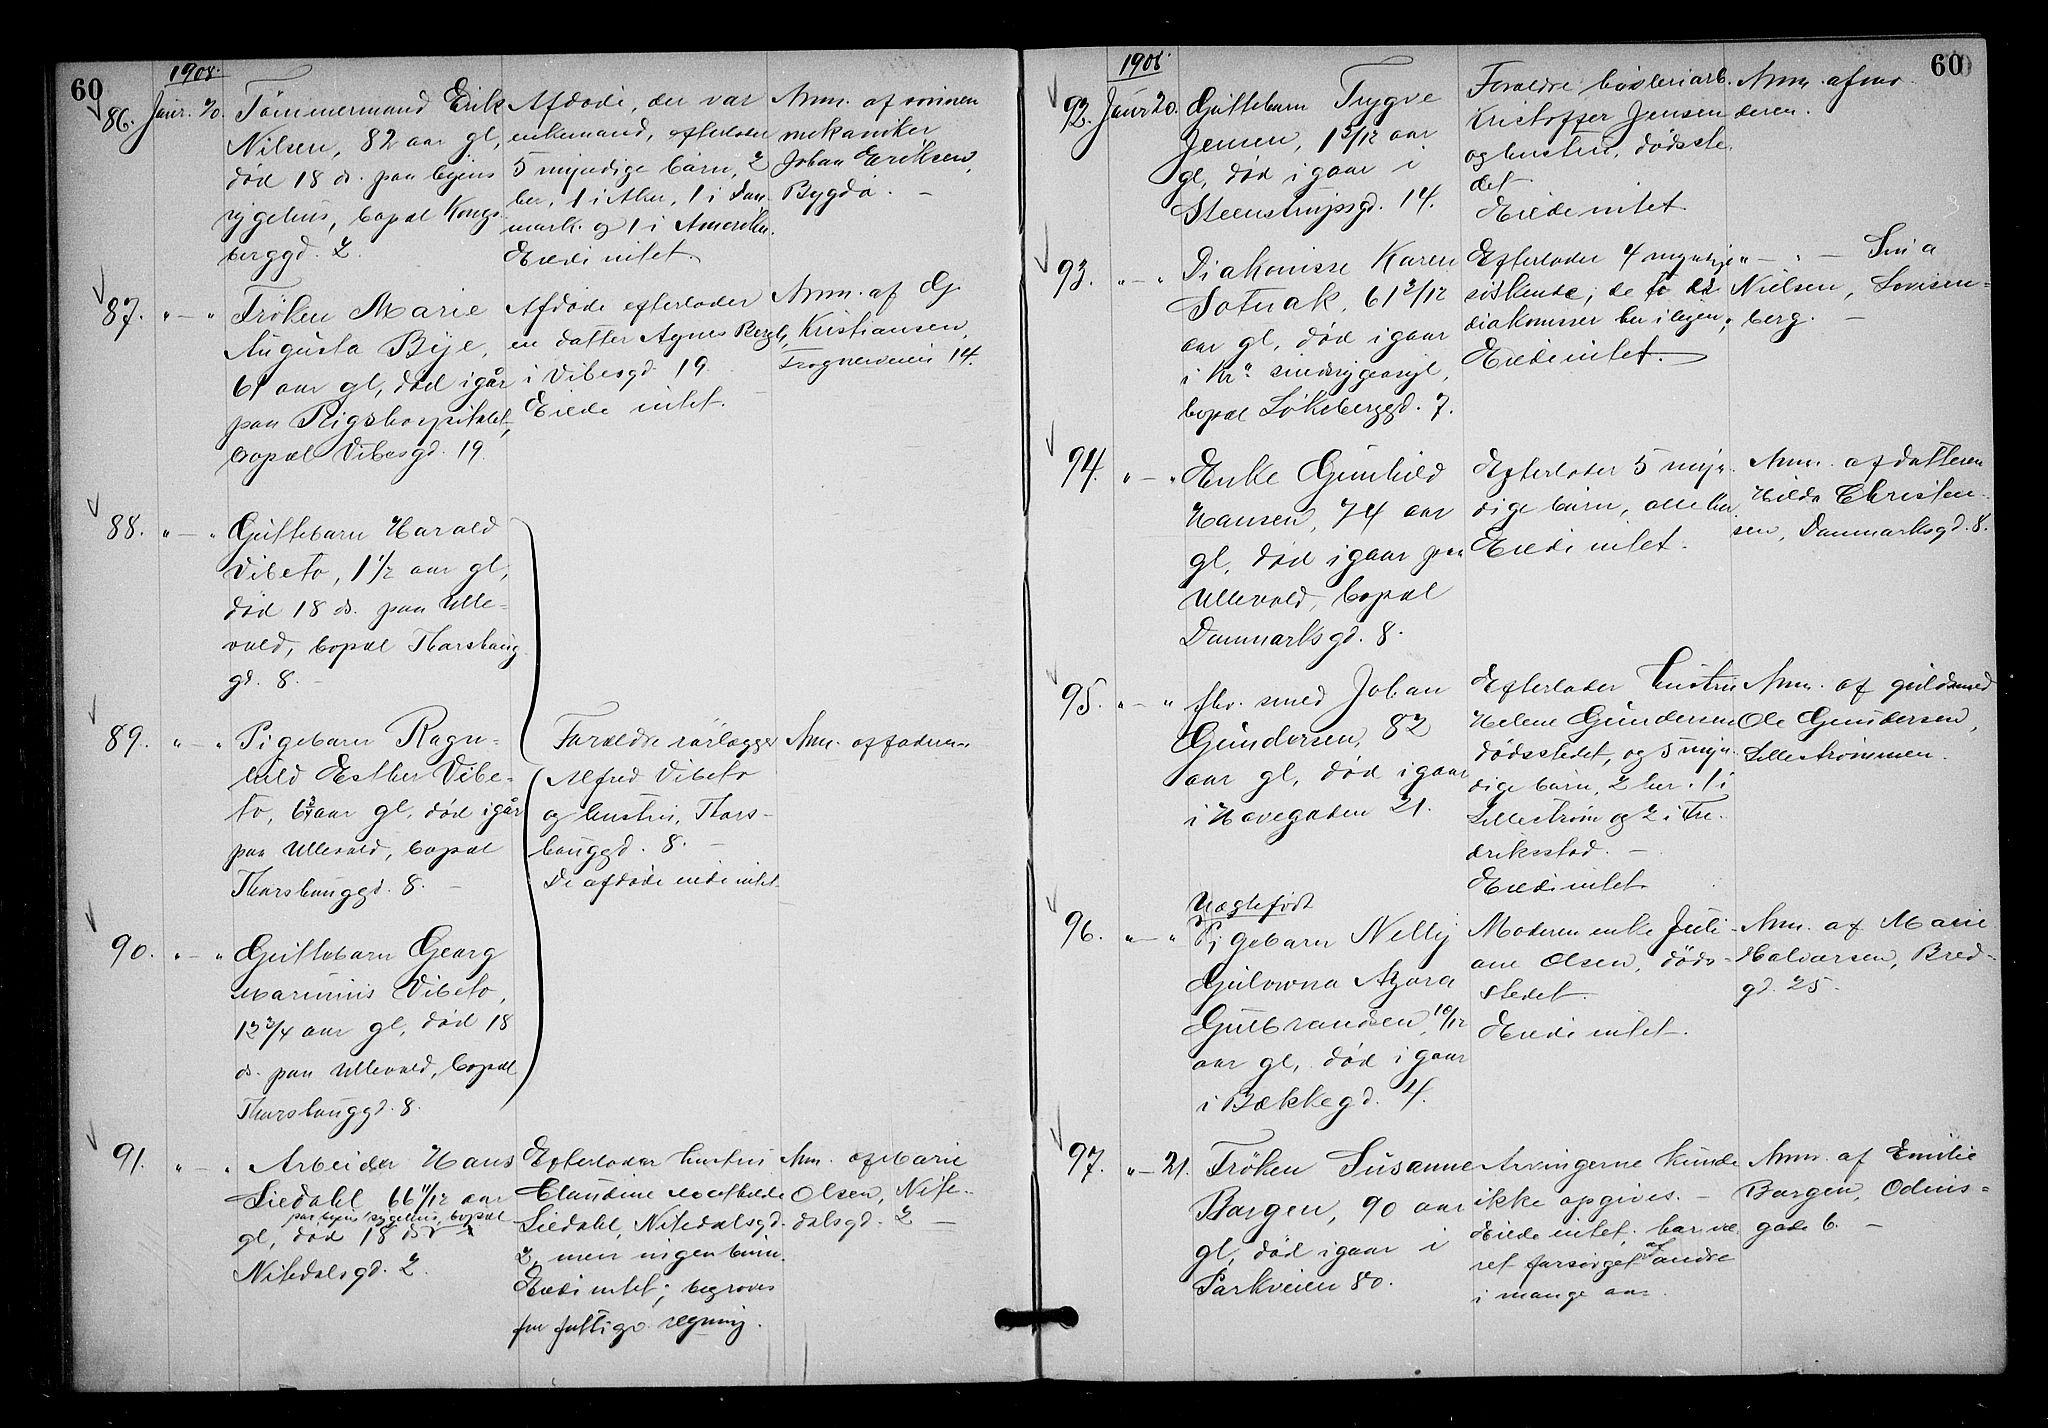 60
1908.
86. Janr. 20. Tømmermand Erik
Nilsen, 82 aar gl,
død 18 ds. paa byens
sygehus, bopæl Kongs
berggd. 2.
Afdøde, der var
enkemand, efterlader
5 myndige børn, 2
her, 1 i Aker, 1 i Dan
mark og 1 i Amerika.
Eiede intet.
Anm. af sønnen
mekaniker
Johan Eriksen,
Bygdø. –
87. " — " Frøken Marie
Augusta Bye,
61 aar gl, død igår
paa Rigshospitalet,
bopæl Vibesgd. 19.
Afdøde efterlader
en datter Agnes Bergh,
i Vibesgd. 19.
Eiede intet.
Anm. af G.
Kristiansen,
Frognerveien 14.
88. " — " Guttebarn Harald
Vibeto, 1 1/2 aar gl,
død 18 ds. paa Ulle-
vold, bopæl Thorshaug
gd. 8. –
89. " — " Pigebarn Ragn-
hild Esther Vibe-
to, 6 3/4 aar gl, død igår
paa Ullevold, bopæl
Thorshauggd. 8. –
Forældre rørlægger
Alfred Vibeto
og hustru, Thors-
hauggd. 8. –
De afdøde eiede intet.
Anm. af faderen
90. " — " Guttebarn Georg
Marinius Vibeto,
12 3/4 aar gl, død 18
ds. paa Ullevold, bopæl
Thorshauggd. 8.
91. " — " Arbeider Hans
Liedahl 66 11/12 aar
paa byens sygehus, bopæl
gl, død 18 ds
Nitedalsgd. 2.
Efterlader hustru
Claudine
Liedahl, Nitedalsgd.
2, men ingen børn.
Eiede intet; begraves
for fattigv. regning.
Anm. af Marie
Olsen, Nite-
dalsgd. 2 –
60
1908
92. Janr 20. Guttebarn Trygve
Jensen, 1 3/12 aar
gl, død igaar i
Steenstrupsgd. 14.
Forældre høvleriarb.
Kristoffer Jensen
og hustru, dødsste
det
Eiede intet
Anm. af mo
deren.
93. " — " Diakonisse Karen
Sotnak, 61 2/12
aar gl, død igaar
i Kr.a sindssygeasyl,
bopæl Løkkeberggd. 7.
Efterlader 4 myndige
søskende, de to er
diakonisser her i byen;
Eiede intet.
" — " — Sina
Nielsen, Lovisen-
berg. –
94. " — " Enke Gunhild
Hansen, 74 aar
gl, død igaar paa
Ullevold, bopæl
Danmarksgd. 8.
Efterlader 5 myn
dige børn, alle her
Eiede intet.
Anm. af datteren
Hilda Christen-
sen, Danmarksgd. 8.
95. " — " fhv. smed Johan
Gundersen, 82
aar gl, død igaar
i Havegaden 21.
Efterlader hustru
Helene Gundersen
dødsstedet, og 5 myn
dige børn, 2 her, 1 i
Lillestrøm og 2 i Fre
driksstad. –
Eiede intet
Anm. af guldsmed
Ole Gundersen,
Lillestrømmen.
96. " — " Uægtefødt
Pigebarn Nelly
Gulovna Azora
Gulbrandsen, 10/12
aar gl, død igaar
i Bækkegd. 4.
Moderen enke Juli-
ane Olsen, døds-
stedet.
Eiede intet.
Anm. af Marie
Halvorsen, Bred-
gd. 25.
97. " — 21. Frøken Susanne
Borgen, 90 aar
gl, død igaar i
Parkveien 80.
Arvingerne kunde
ikke opgives. –
Eiede intet, har væ
ret forsørget af andre
i mange aar.
Anm. af Emilie
Borgen, Odins-
gade 6. –